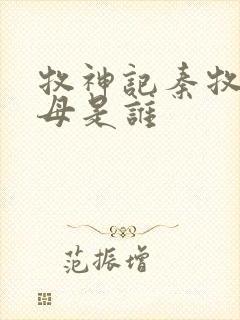 牧神記秦牧
母是誰
范振增